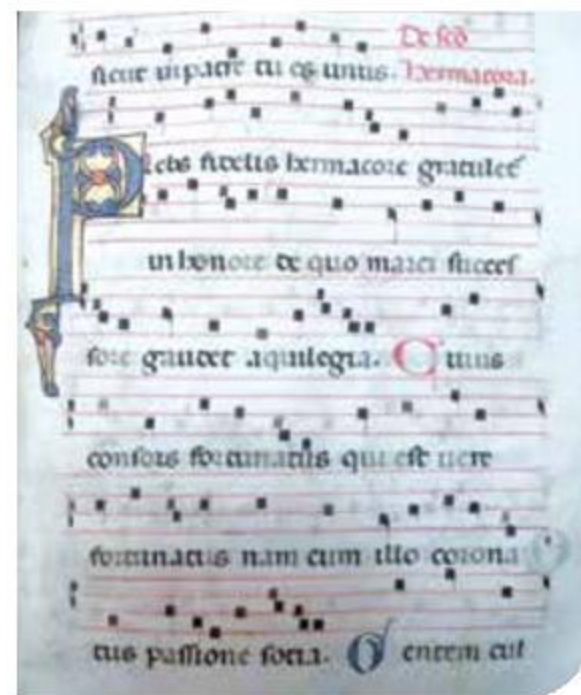 sicut in patre tu es unus. De sco
hermacora.
Plebs fidelis hermacore gratulet
in honore de quo marci succes
sore gaudet aquilegia. Cuius
consors fortunatus qui est vere
fortunatus nam cum illo corona
tus passione socia. Oentem cul